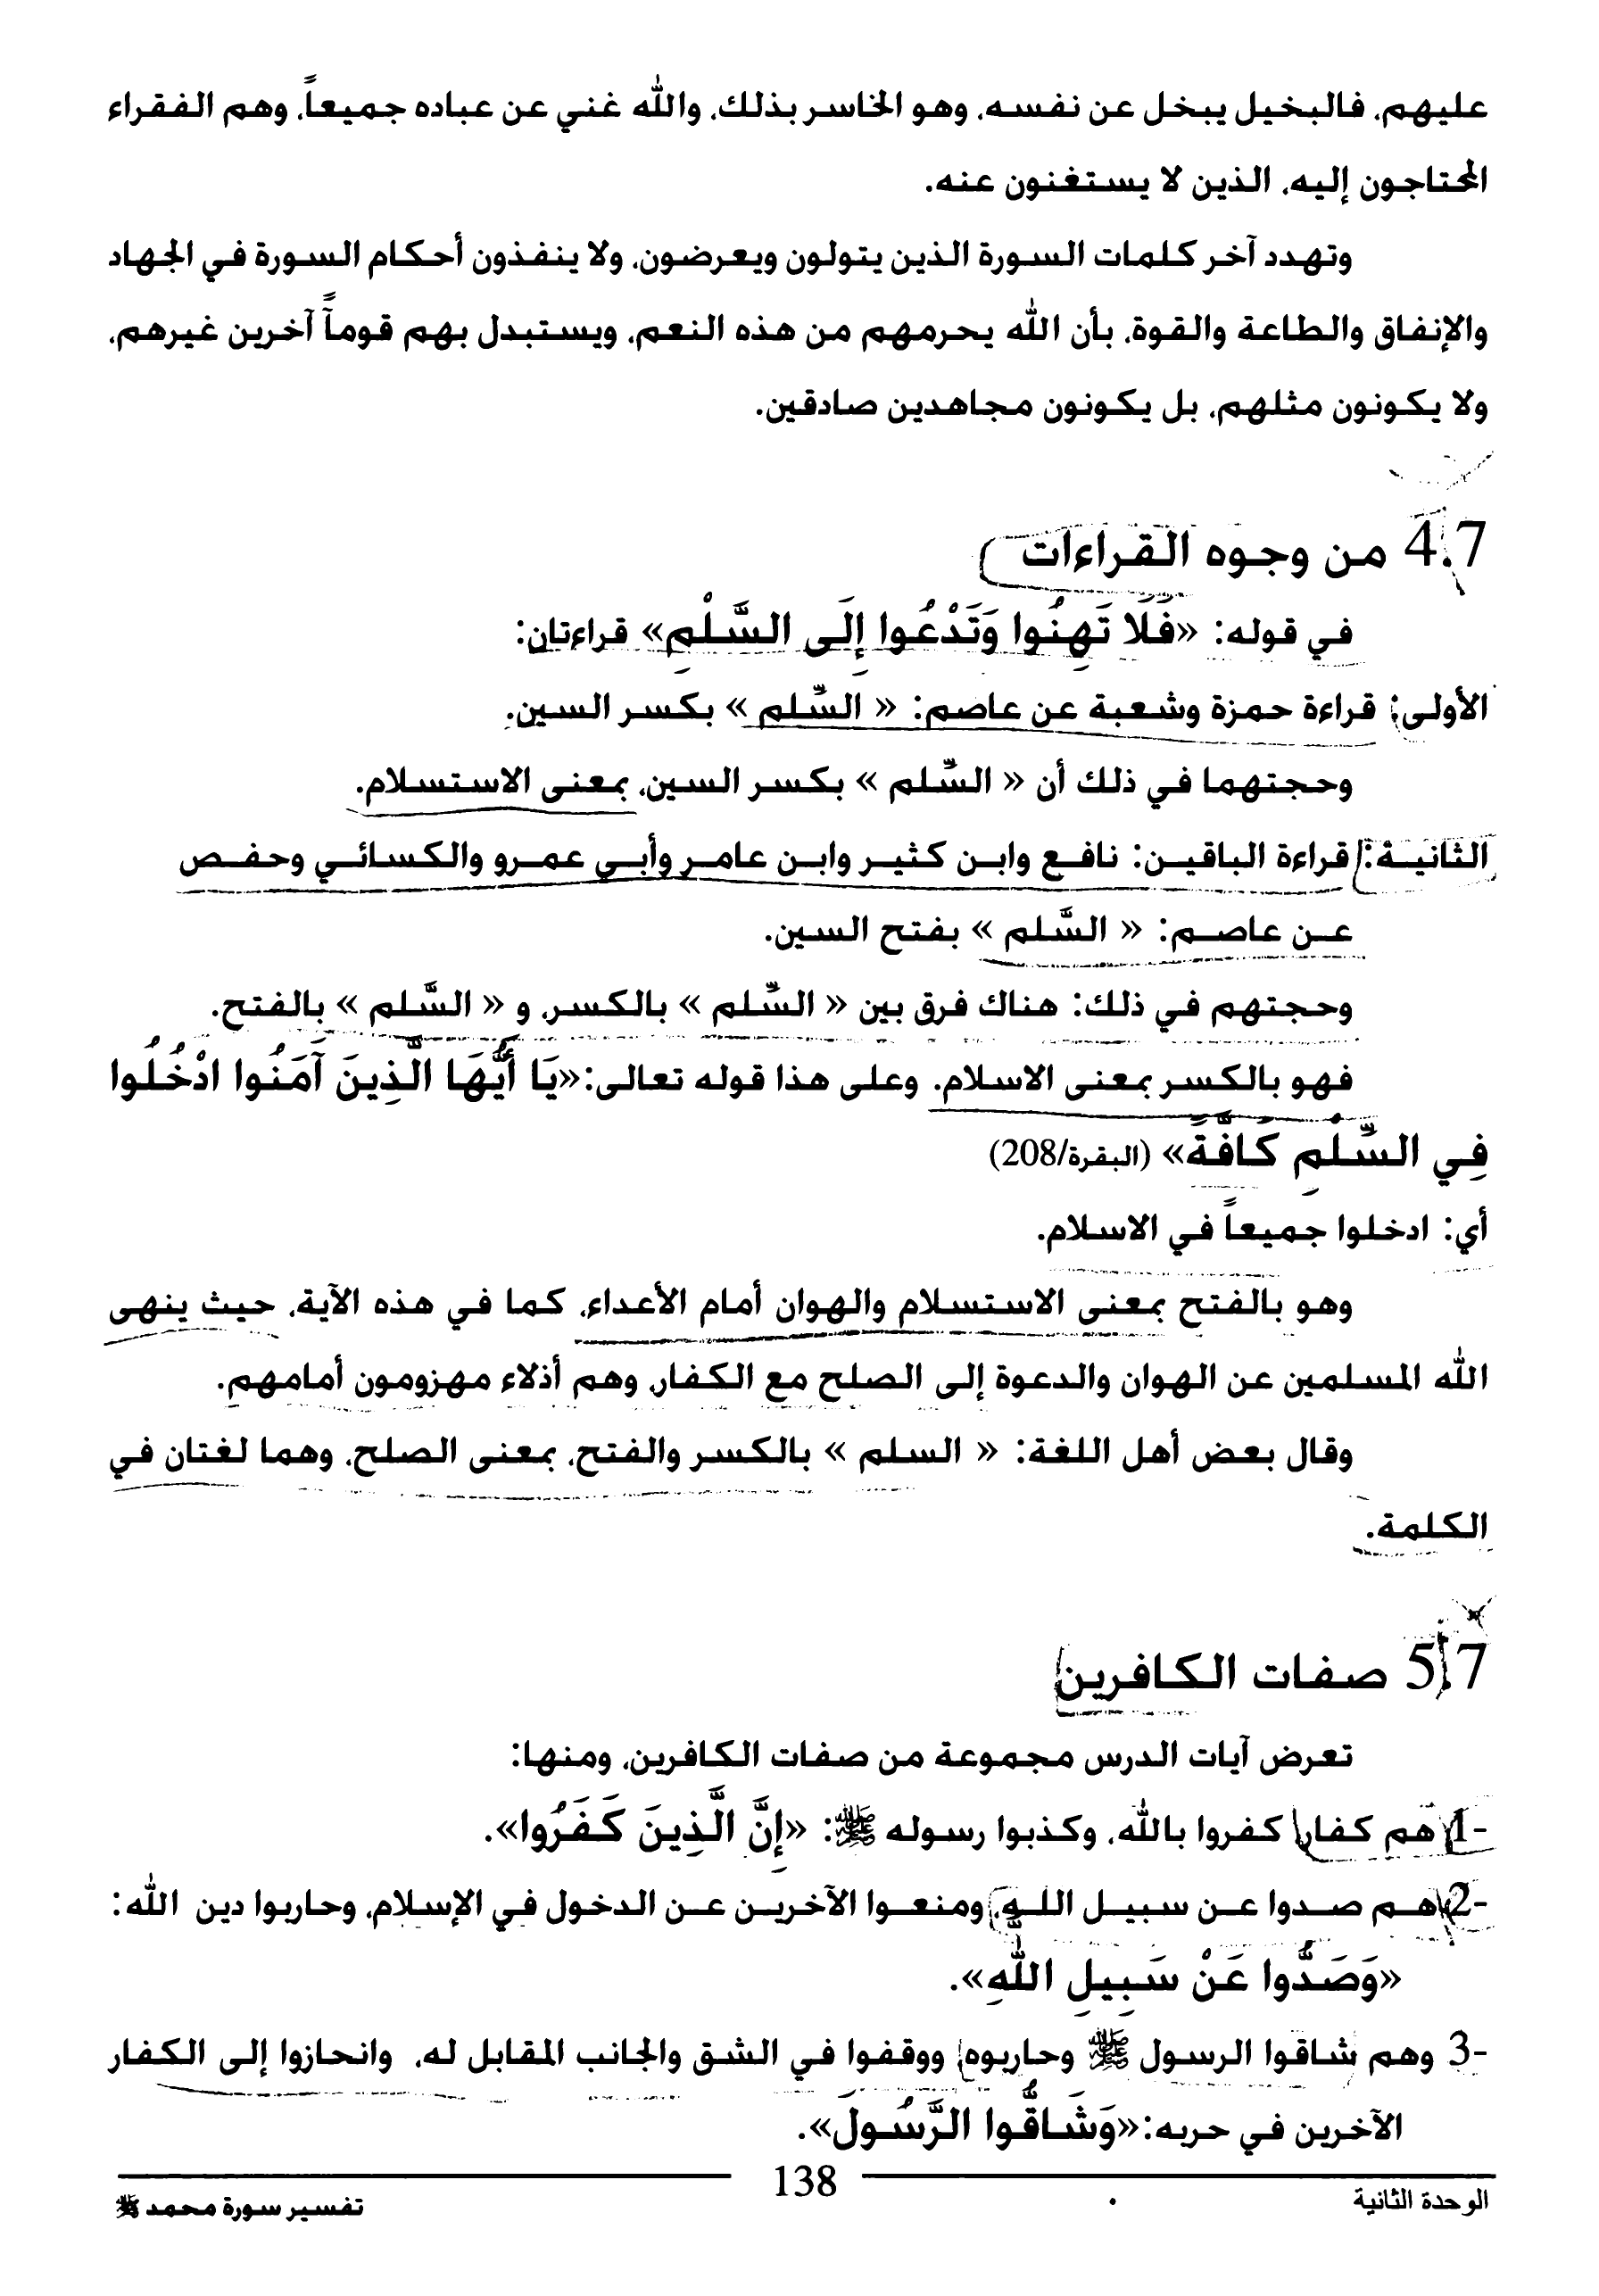 عليهم، فالبخيل يبخل عن نفسه، وهو الخاسر بذلك، والله غني عن عباده جميعاً، وهم الفقراء
المحتاجون إليه، الذين لا يستغنون عنه.
وتهدد آخر كلمات السورة الذين يتولون ويعرضون، ولا ينفذون أحكام السورة في الجهاد
والإنفاق والطاعة والقوة، بأن الله يحرمهم من هذه النعم، ويستبدل بهم قوماً آخرين غيرهم،
ولا يكونون مثلهم، بل يكونون مجاهدين صادقين.
4.7 من وجوه القراءات
في قوله: «فَلَا تَهِنُوا وَتَدْعُوا إِلَى السَّلْمِ» قراءتان:
الأولى: قراءة حمزة وشعبة عن عاصم: « السِّلم » بكسر السين.
وحجتهما في ذلك أن « السِّلم » بكسر السين، بمعنى الاستسلام.
الثانيـة: قراءة الباقيـن: نافـع وابـن كثيـر وابـن عامـر وأبـي عمـرو والكسـائـي وحفـص
عـن عاصـم: « السَّلم » بفتح السين.
وحجتهم في ذلك: هناك فرق بين « السِّلم » بالكسر، و « السَّلم » بالفتح.
فهو بالكسر بمعنى الاسلام. وعلى هذا قوله تعالى:«يَا أَيُّهَا الَّذِينَ آمَنُوا ادْخُلُوا
فِي السِّلْمِ كَافَّةً» (البقرة/208)
أي: ادخلوا جميعاً في الاسلام.
وهو بالفتح بمعنى الاستسلام والهوان أمام الأعداء، كما في هذه الآية، حيث ينهى
الله المسلمين عن الهوان والدعوة إلى الصلح مع الكفار، وهم أذلاء مهزومون أمامهم.
وقال بعض أهل اللغة: « السلم » بالكسر والفتح، بمعنى الصلح، وهما لغتان في
الكلمة.
5.7 صفات الكافرين
تعرض آيات الدرس مجموعة من صفات الكافرين، ومنها:
1- هم كفار كفروا بالله، وكذبوا رسوله ﷺ: «إِنَّ الَّذِينَ كَفَرُوا».
2- هـم صـدوا عـن سبيـل اللـه، ومنعـوا الآخريـن عـن الدخول في الإسلام، وحاربوا دين الله:
«وَصَدُّوا عَنْ سَبِيلِ اللَّهِ».
3- وهم شاقوا الرسول ﷺ وحاربوه، ووقفوا في الشق والجانب المقابل له، وانحازوا إلى الكفار
الآخرين في حربه:«وَشَاقُّوا الرَّسُولَ».
الوحدة الثانية
138
تفسير سورة محمد ﷺ